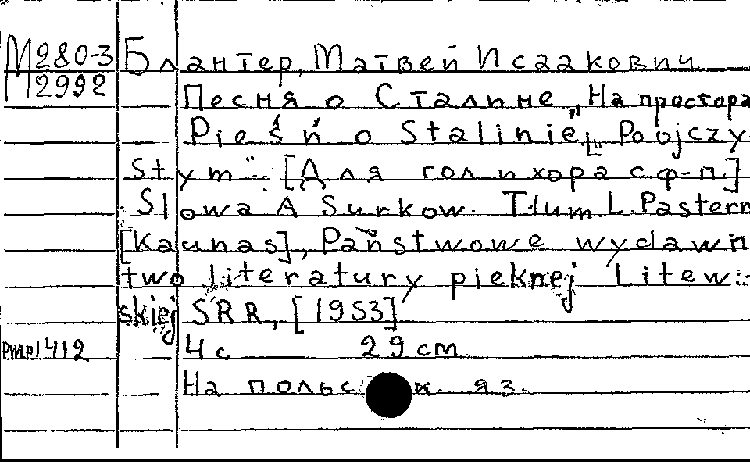 М280-3 Блантер, Матвей Исаакович
М2992
Песня о Сталине "На простора
Pieśń o Stalinie „Po ojczy
stym". [Для гол и хора с ф-п.]
Slowa A Surkow. Tłum L. Pastern
[Kaunas], Państwowe wydawn
two literatury pięknej Litew-
skiej SRR, [1953]
4 с 29 cm
1412
На польс яз.